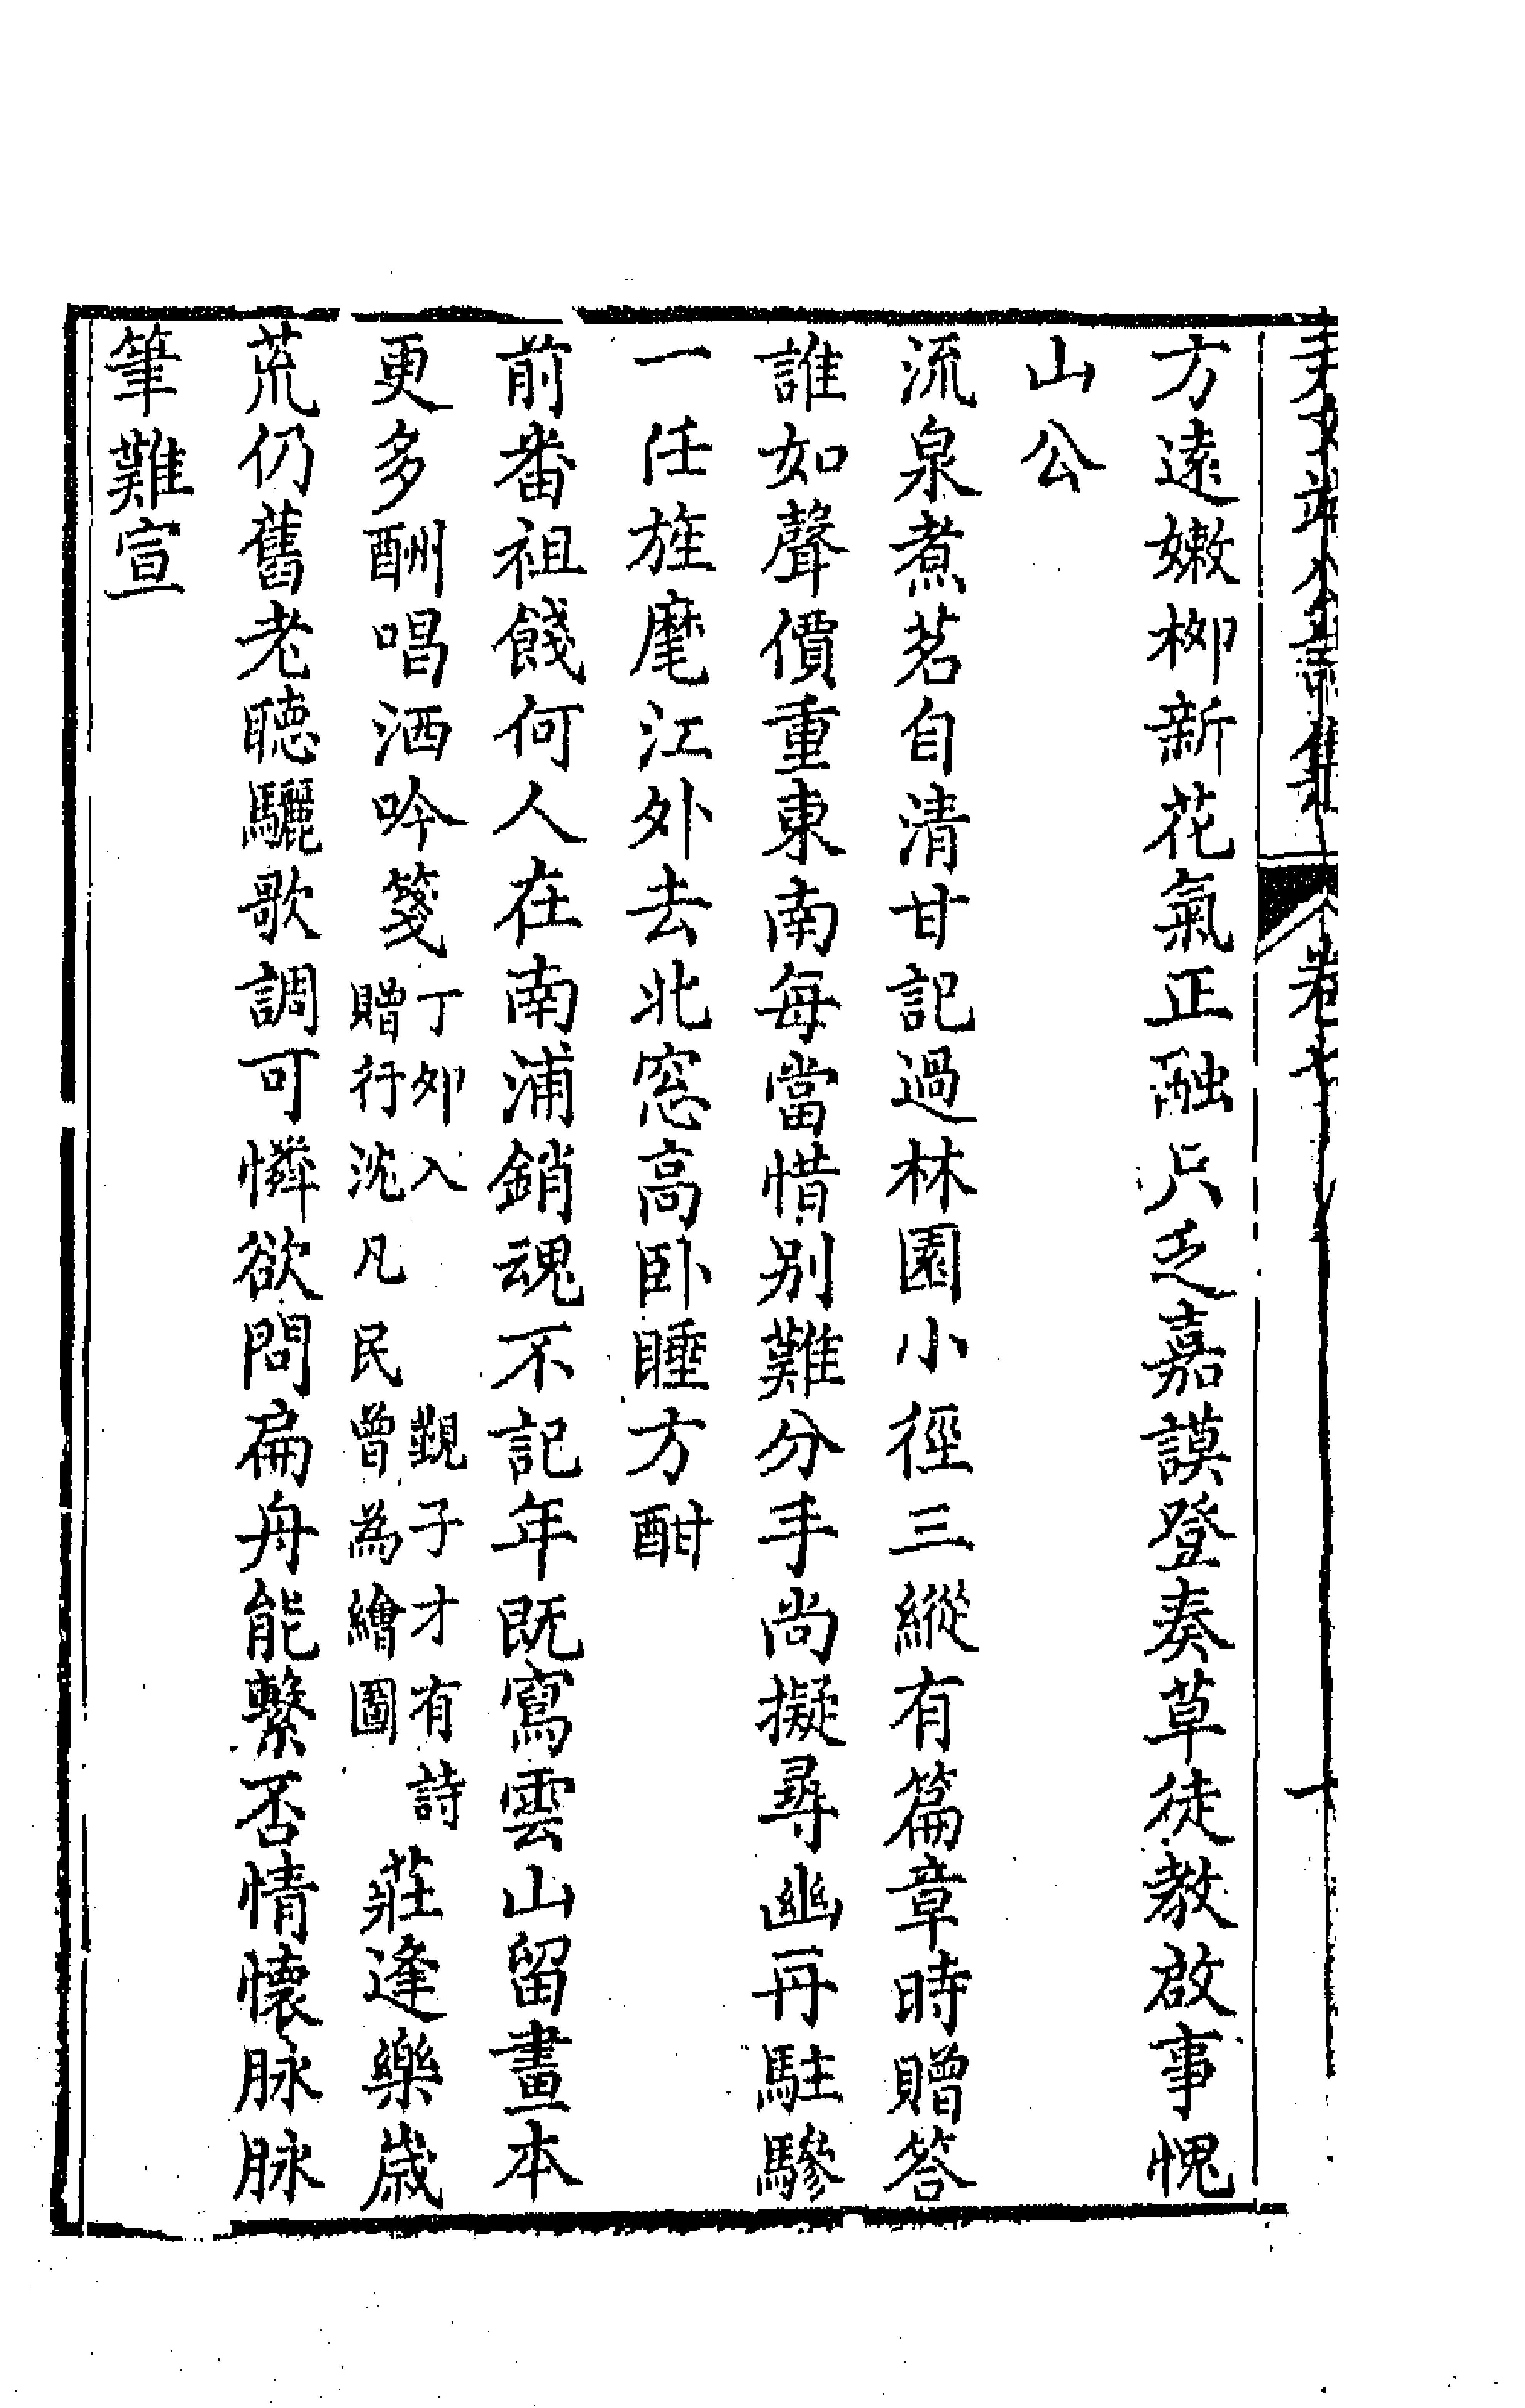 卷七
十
方遠嫩柳新花氣正融只乏嘉謨登奏草徒教啟事愧
山公
流泉煮茗自清甘記過林園小徑三縱有篇章時贈答
誰如聲價重東南每當惜別難分手尚擬尋幽再駐驂
一任旌麾江外去北窓高卧睡方酣
前番祖餞何人在南浦銷魂不記年既寫雲山留畫本
更多酬唱洒吟箋丁卯入覲子才有詩贈行沈凡民曾為繪圖莊逢樂歲
荒仍舊老聽驪歌調可憐欲問扁舟能繫否情懷脉脉
筆難宣